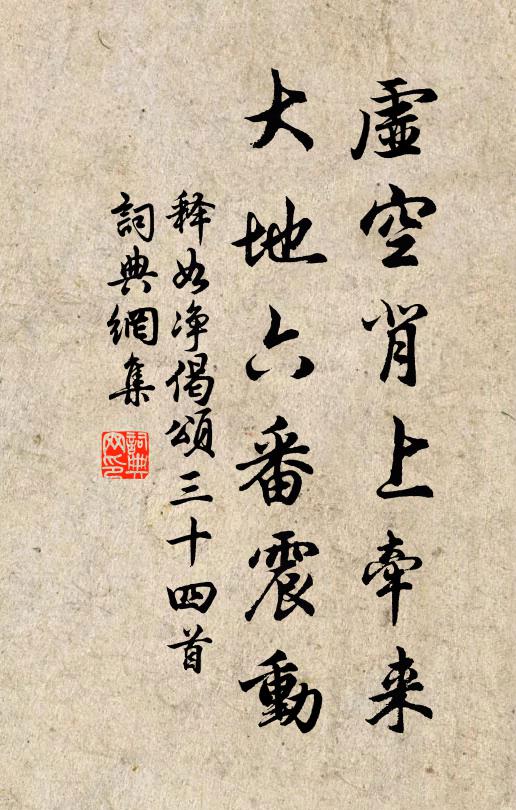 虚空背上牵来
大地六番震動
释如净偈頌三十四首
詞典網集
詞典网印